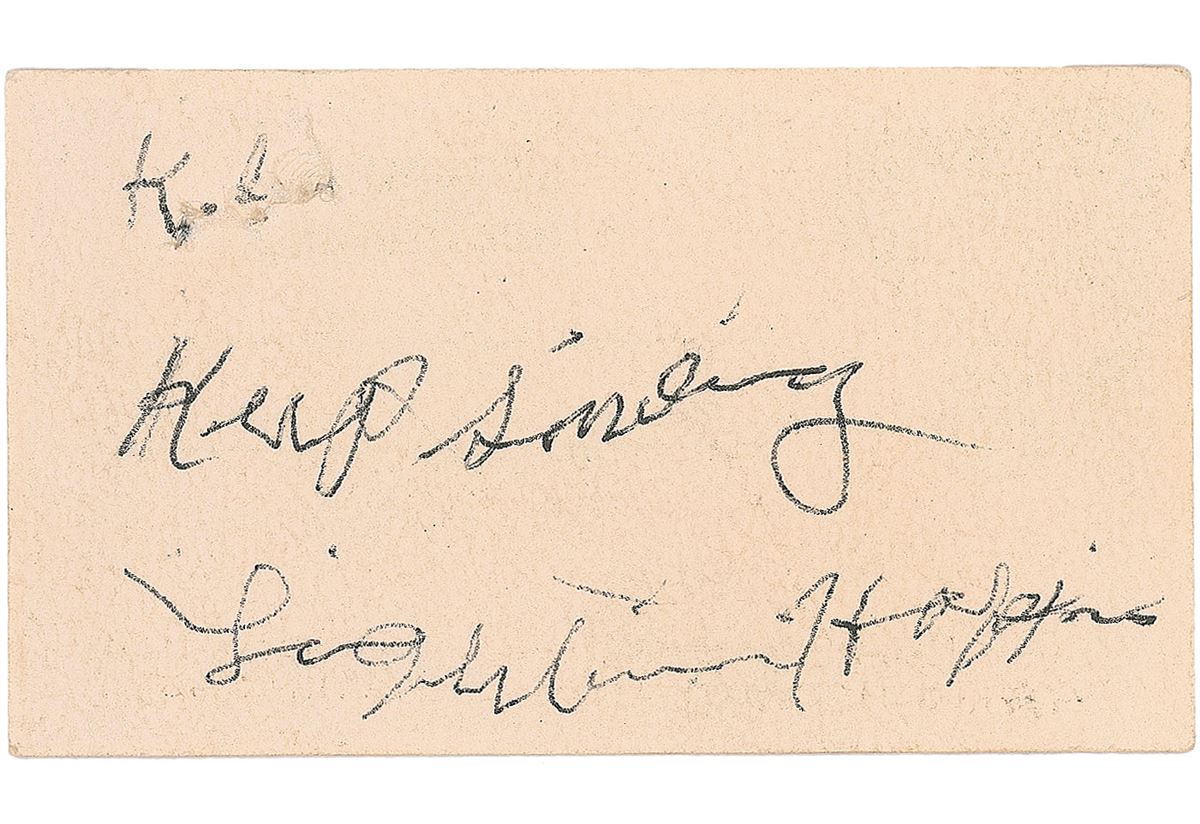 K.
Keep singing
Lightnin Hopkins